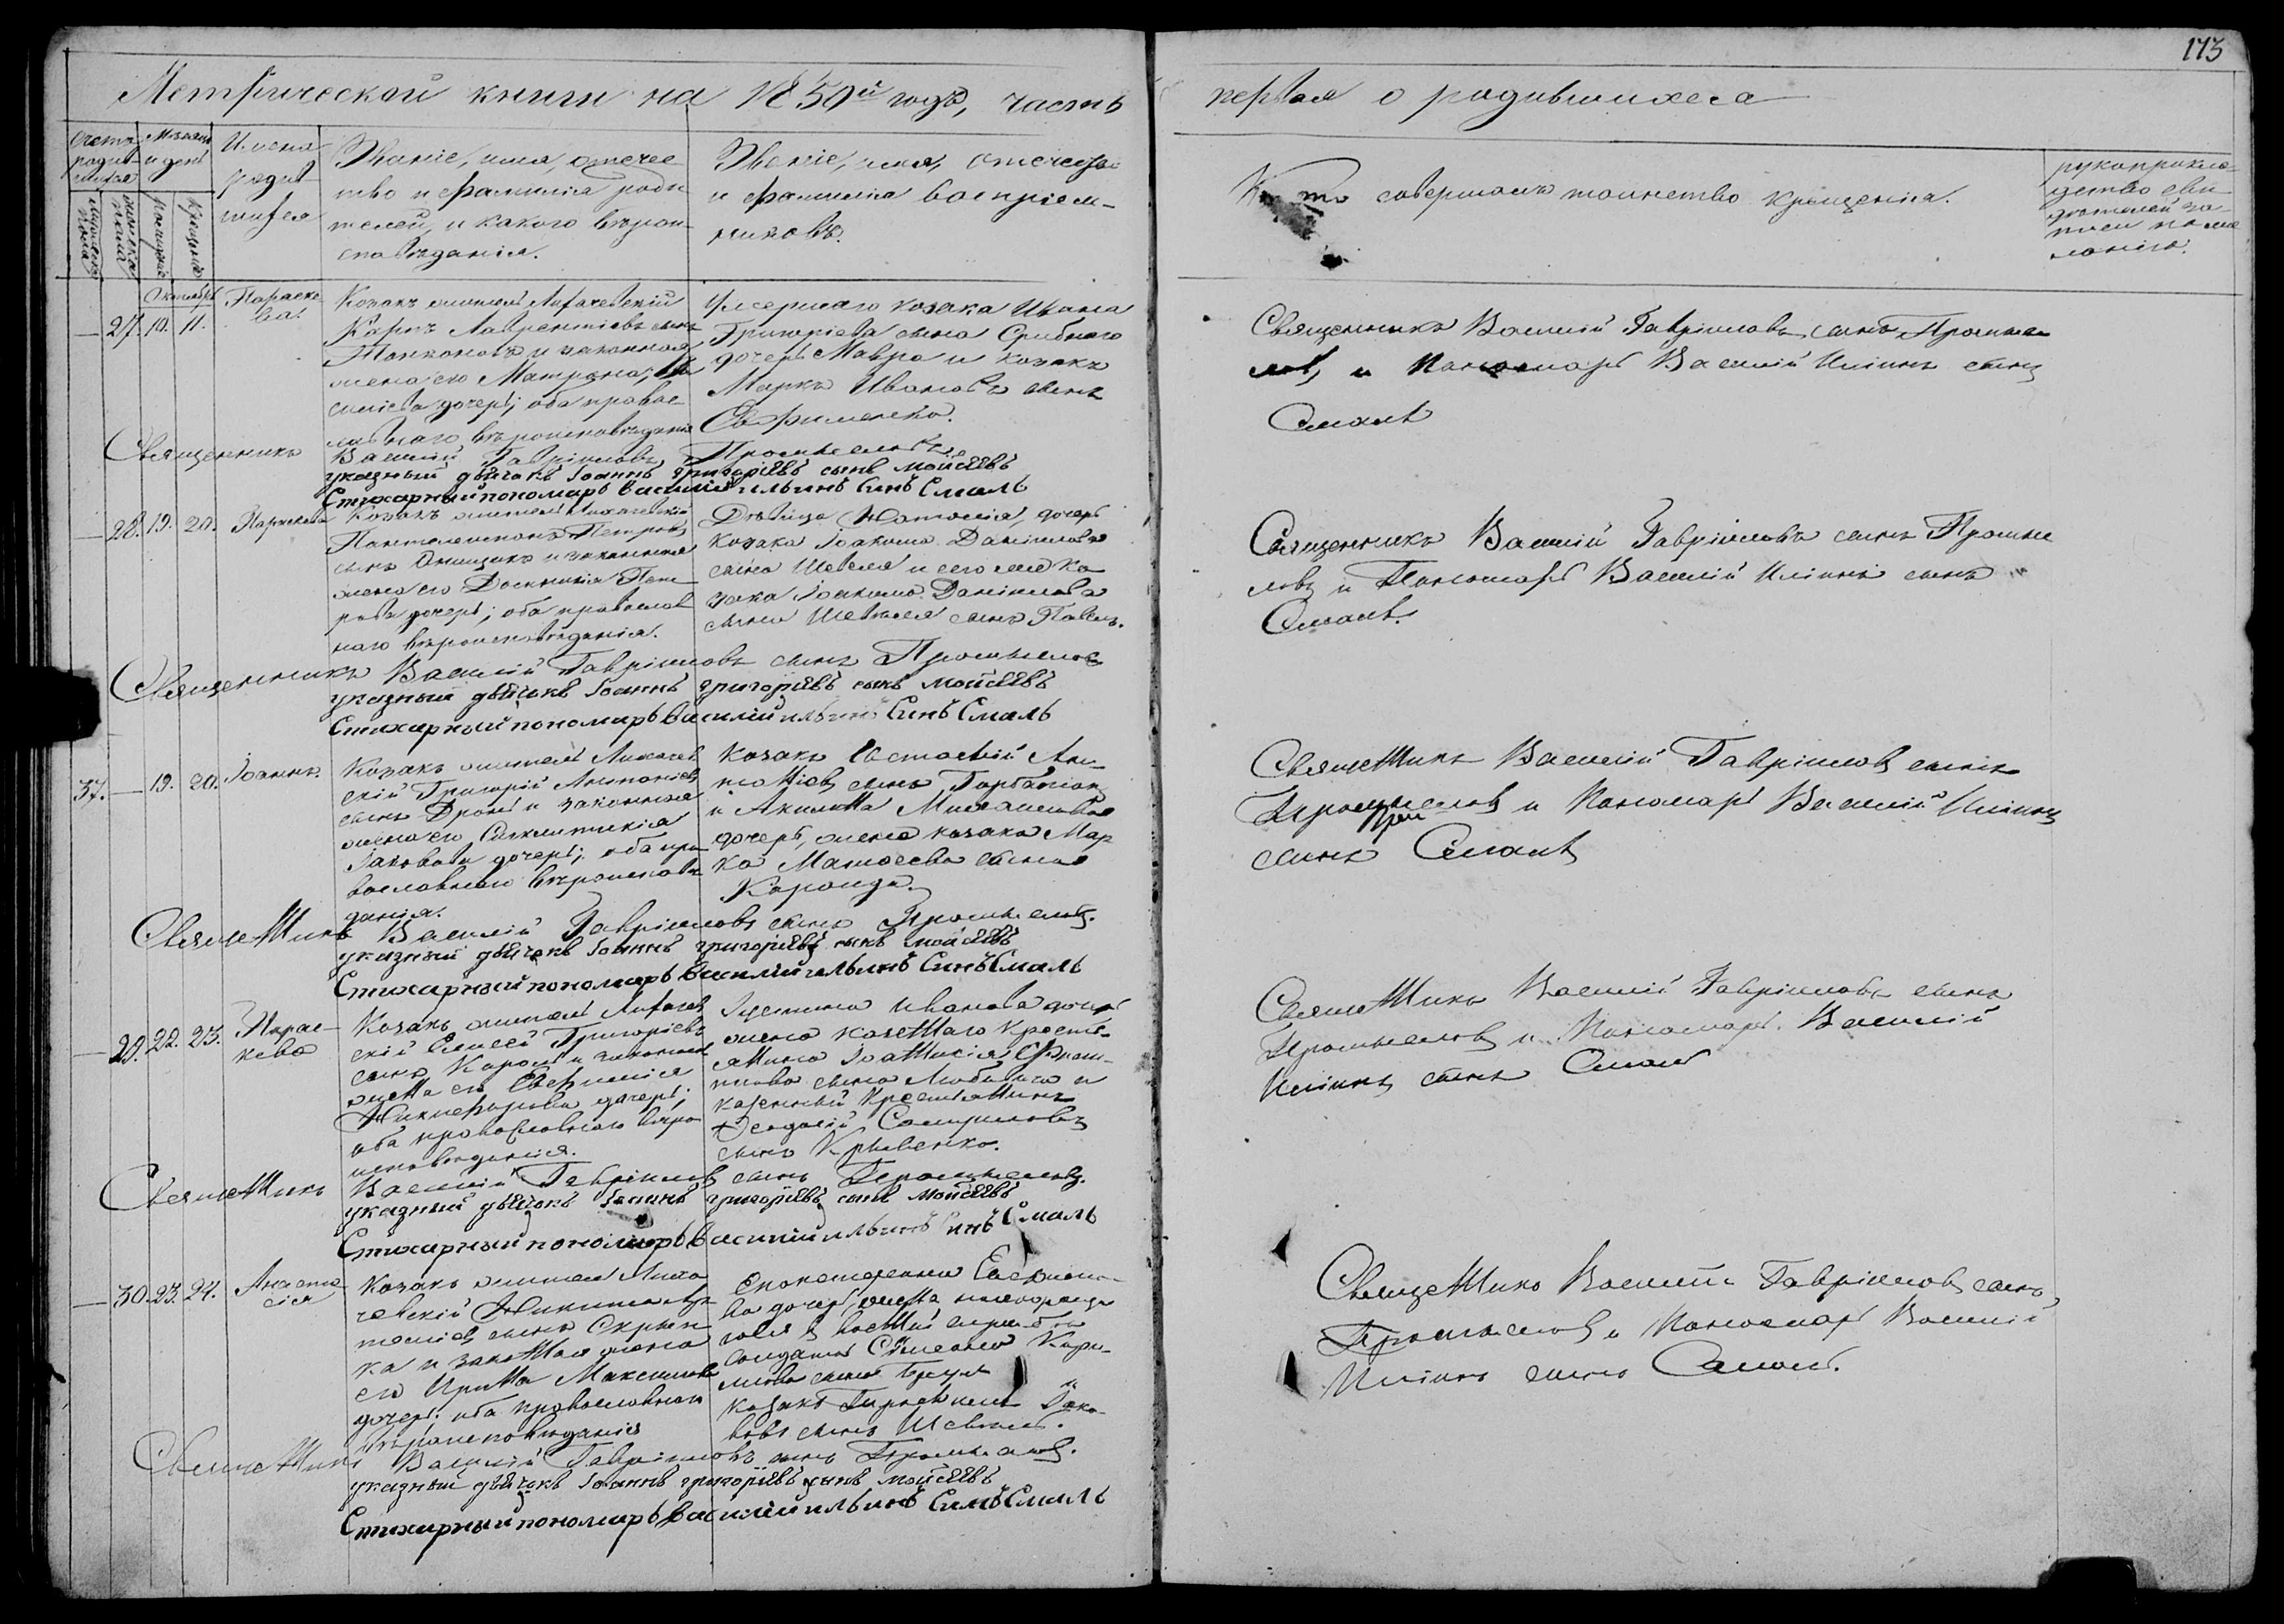 173
Метрической книги на 1850й годъ, часть первая о родившихся
Счетъ родив-шихся
Мѣсяцъ и день
Имена родив-шихся
Званіе, имя, отечес
тво и фамилія роди
телей, и какого вѣроис
повѣданія.
Званіе, имя, отечество
и фамилія воспріем-
никовъ.
Кто совершалъ таинство крещенія.
рукоприкла-
детво сви
дѣтелей за-
писи по же
ланію.
мужеска пола
женска пола
рожденія
крещенія
Октябрь
— 27. 10. 11.
Параске-
ва.
Козакъ жители
Карпъ Лаврентіевъ сынъ
и законная
жена его Матрона,
дочерь; оба правос
лавнаго вѣроисповѣданія
Умершаго козака Ивана
Григоріева сына Срибнаго
дочерь Мавра и козакъ
Маркъ Ивановъ сынъ
Евфименко.
Священникъ Василій Гавріиловъ сынъ Промысло
въ, и Пономарь Василій Иліинъ сынъ
Смаль
Священникъ Василій Гавріиловъ Промысловъ
указный дьячокъ Іоаннъ григоріевъ сынъ мойсеевъ
Стихарный пономарь василій ильинъ Синъ Смаль
— 28. 19. 20.
Параскева
Козакъ жители Лихачевскій
Пантелеимонъ Петровъ
сынъ Онищикъ и законная
жена его Домникія Пет
рова дочерь; оба православ
наго вѣроисповѣданія.
Дѣвица дочерь
козака Іоакима Даніилова
сына Шевеля и его же ко
зака Іоакима Даніилова
сына Шевеля сынъ Павелъ.
Священникъ Василій Гавріиловъ сынъ Промыс
ловъ и Пономарь Василій Иліинъ сынъ
Смаль.
Священникъ Василій Гавріиловъ сынъ Промыслов
указный дьячокъ Іоаннъ григоріевъ сынъ мойсеевъ
Стихарный пономарь василій ильинъ Синъ Смаль
37. — 19. 20.
Іоаннъ.
Козакъ жители Лихачев
скій Григорій Антоніев
сынъ Дроль и законная
жена его Синклитикія
Іаковова дочерь; оба пра
вославнаго вѣроисповѣ
данія.
Козакъ Евстафій Ан
тоніев сынъ Горбатюк
и Акилина Михайлова
дочерь, жена козака Мар
ка Матѳеева сына
Карпида.
Священникъ Василій Гавріиловъ сынъ
Промысловъ и Пономарь Василій Иліинъ
сынъ Смаль
Священникъ Василій Гавріиловъ сынъ Промысловъ.
указный дьячокъ Іоаннъ григоріевъ сынъ мойсеевъ
Стихарный пономарь василій ильинъ Синъ Смаль
— 29. 22. 23.
Парас-
кева
Козакъ жители Лихачев
скій Елисей Григоріевъ
сынъ и законная
жена его Евфимія
Никифорова дочерь;
оба православнаго вѣро
исповѣданія.
Іустина Иванова дочерь
жена казеннаго Крестья-
нина
сына Любимаго и
казенный Крестьянинъ
Ѳеодосій Самуиловъ
сынъ Кривенко.
Священникъ Василій Гавріиловъ сынъ
Промысловъ и Пономарь Василій
Иліинъ сынъ Смаль
Священникъ Василій Гавріиловъ сынъ Промысловъ.
указный дьячокъ Іоаннъ григоріевъ сынъ мойсеевъ
Стихарный пономарь василій ильинъ Синъ Смаль
— 30. 23. 24.
Анаста-
сія
Козакъ жители Лиха
чевскій Никита
сынъ Скрып
ка и законная жена
его Ирина Максимова
дочерь; оба православнаго
вѣроисповѣданія
дочерь, жена
солдата Симеона Кири-
лова сына и
козакъ Іако-
вовъ сынъ Шевель.
Священникъ Василій Гавріиловъ сынъ
Промысловъ и Пономарь Василій
Иліинъ сынъ Смаль.
Священникъ Василій Гавріиловъ сынъ Промысловъ.
указный дьячокъ Іоаннъ григоріевъ сынъ мойсеевъ
Стихарный пономарь василій ильинъ Синъ Смаль